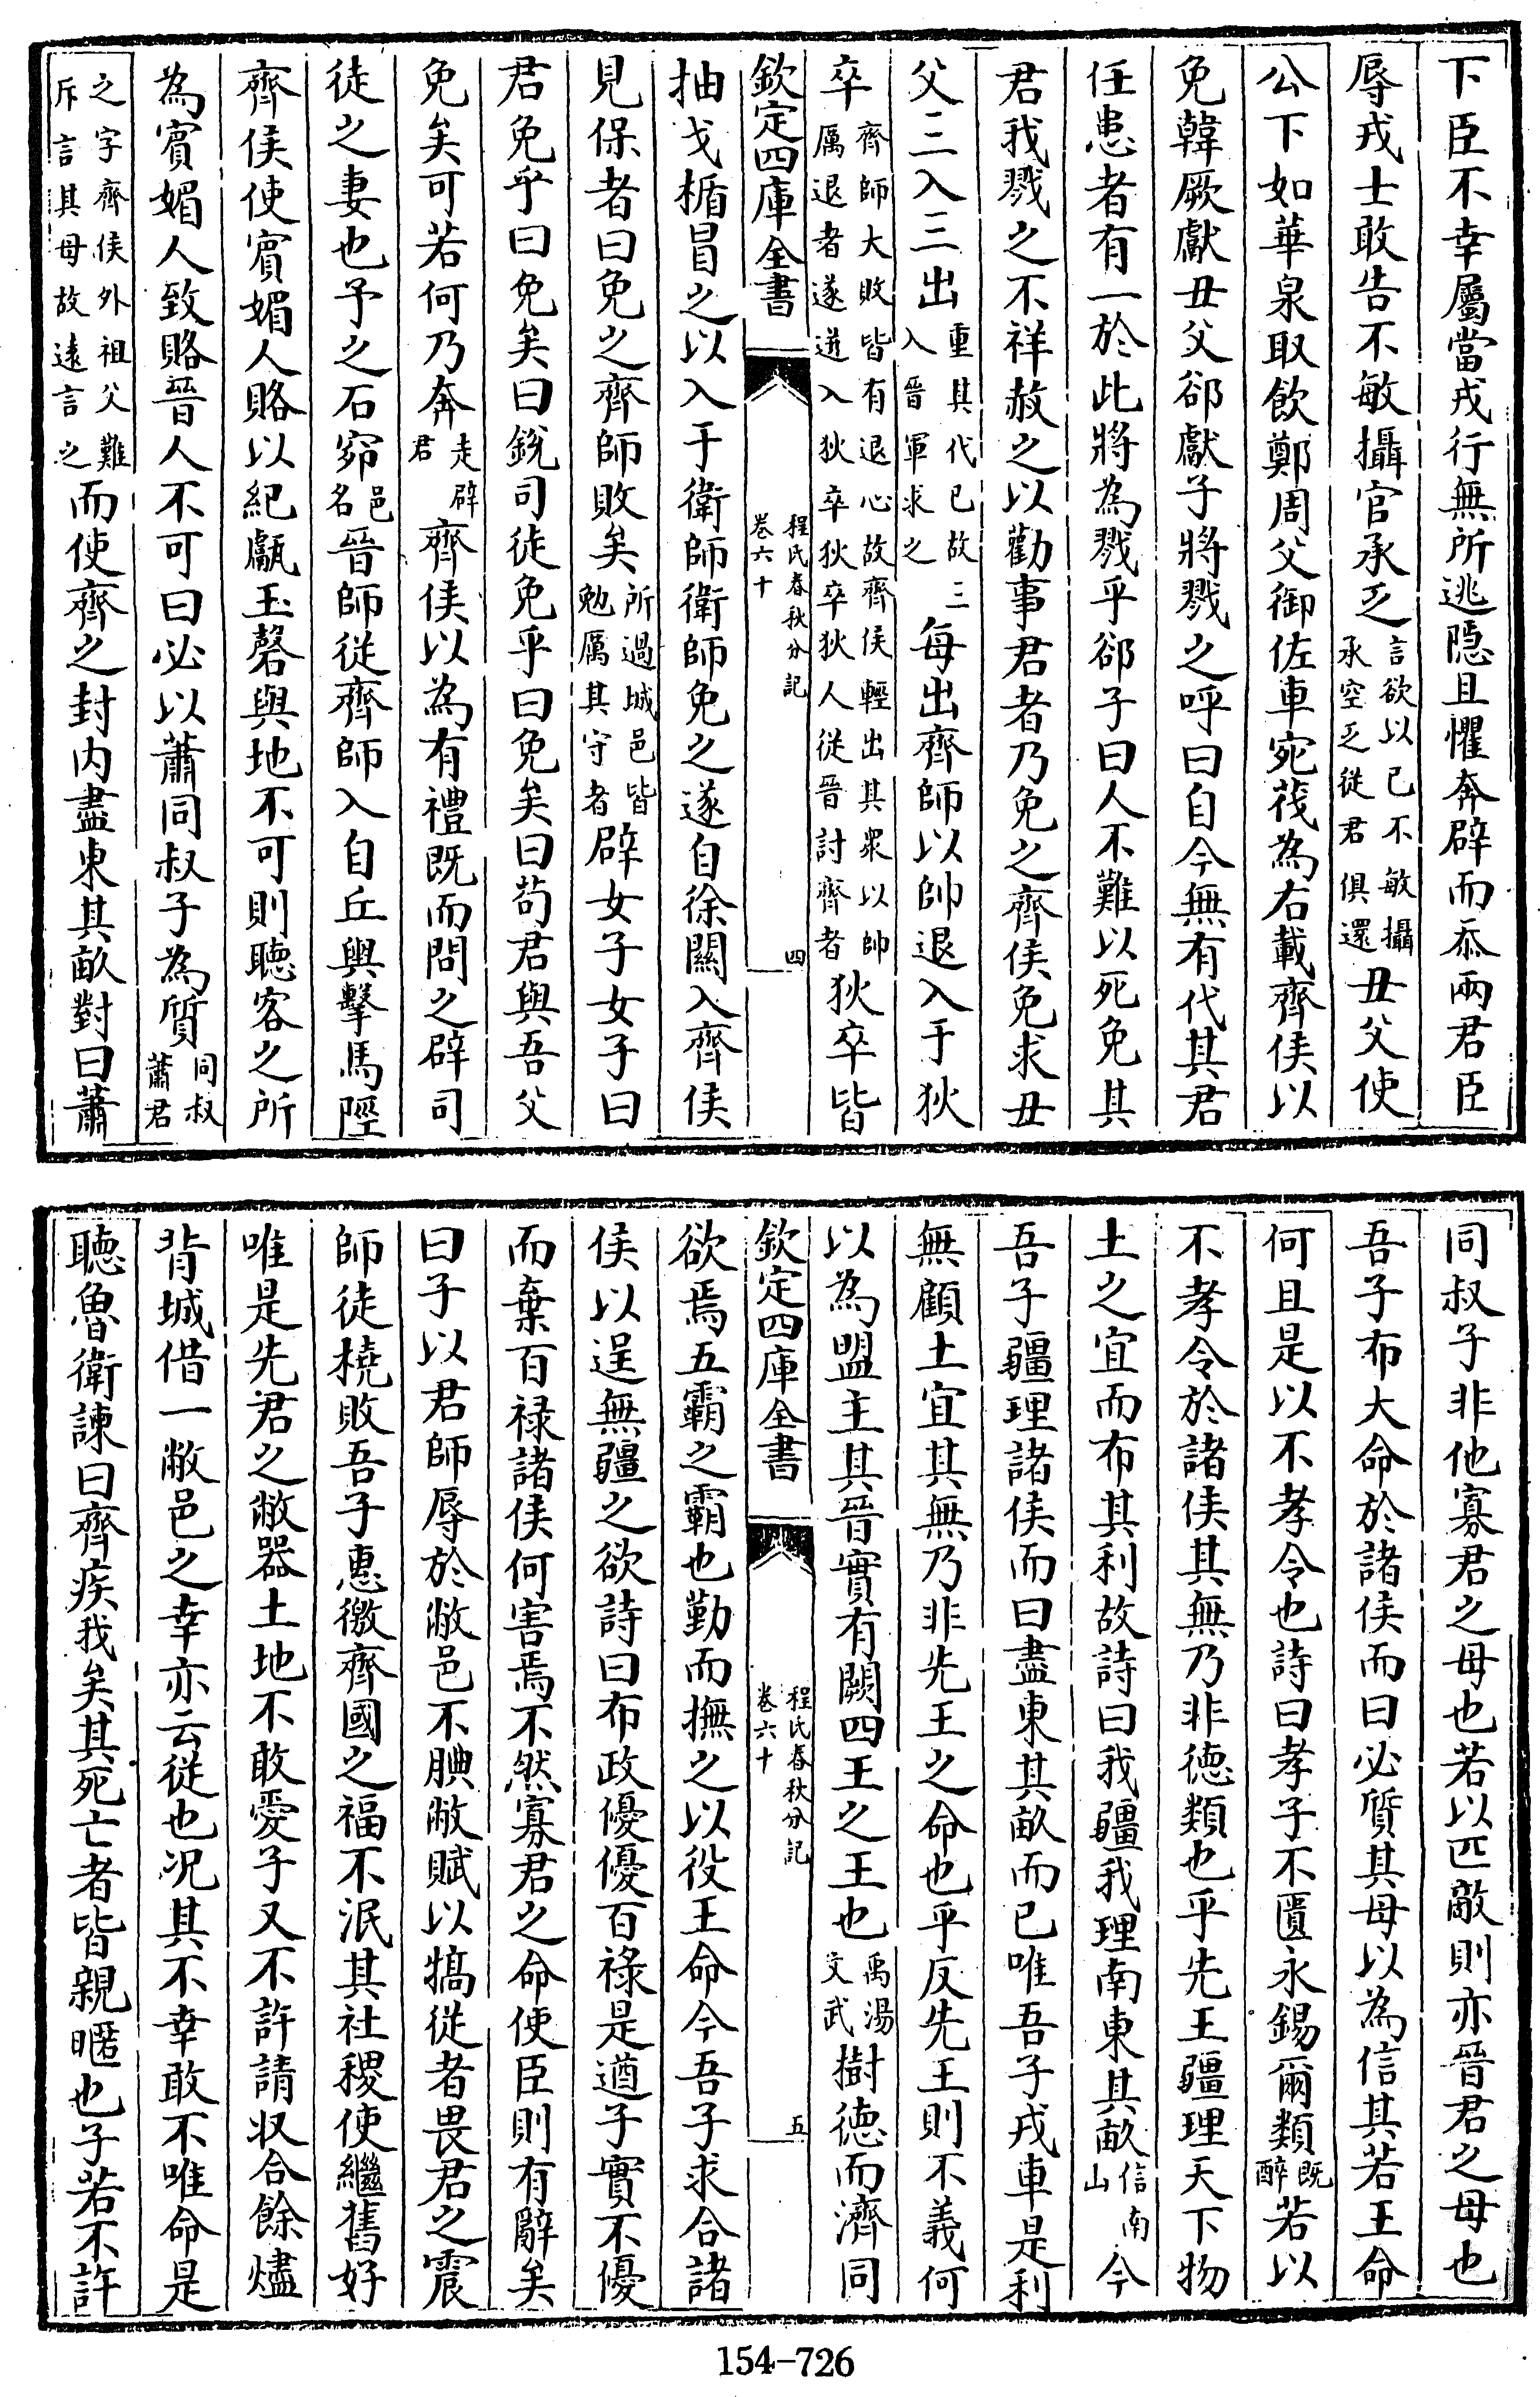 下臣不幸屬當戎行無所逃隠且懼奔辟而忝兩君臣
辱戎士敢告不敏攝官承乏言欲以已不敏攝承空乏從君俱還丑父使
公下如華泉取飲鄭周父御佐車宛茷為右載齊侯以
免韓厥獻丑父郤獻子將戮之呼曰自今無有代其君
任患者有一於此將為戮乎郤子曰人不難以死免其
君我戮之不祥赦之以勸事君者乃免之齊侯免求丑
父三入三出重其代已故三入晉軍求之每出齊師以帥退入于狄
卒齊師大敗皆有退心故齊侯輕出其衆以帥厲退者遂迸入狄卒狄卒狄人從晉討齊者狄卒皆
欽定四庫全書 程氏春秋分記 卷六十 四
抽戈楯冒之以入于衛師衛師免之遂自徐關入齊侯
見保者曰免之齊師敗矣所過城邑皆勉厲其守者辟女子女子曰
君免乎曰免矣曰銳司徒免乎曰免矣曰苟君與吾父
免矣可若何乃奔走辟君齊侯以為有禮既而問之辟司
徒之妻也予之石窌邑名晉師從齊師入自丘輿擊馬陘
齊侯使賓媚人賂以紀甗玉磬與地不可則聽客之所
為賓媚人致賂晉人不可曰必以蕭同叔子為質同叔蕭君
之字齊侯外祖父難斥言其母故遠言之而使齊之封内盡東其畝對曰蕭
同叔子非他寡君之母也若以匹敵則亦晉君之母也
吾子布大命於諸侯而曰必質其母以為信其若王命
何且是以不孝令也詩曰孝子不匱永錫爾類既醉若以
不孝令於諸侯其無乃非徳類也乎先王疆理天下物
土之宜而布其利故詩曰我疆我理南東其畝信南山今
吾子疆理諸侯而曰盡東其畝而已唯吾子戎車是利
無顧土宜其無乃非先王之命也乎反先王則不義何
以為盟主其晉實有闕四王之王也禹湯文武樹徳而濟同
欽定四庫全書 程氏春秋分記 卷六十 五
欲焉五霸之霸也勤而撫之以役王命今吾子求合諸
侯以逞無疆之欲詩曰布政優優百祿是遒子實不優
而棄百祿諸侯何害焉不然寡君之命使臣則有辭矣
曰子以君師辱於敝邑不腆敝賦以犒從者畏君之震
師徒橈敗吾子惠徼齊國之福不泯其社稷使繼舊好
唯是先君之敝器土地不敢愛子又不許請収合餘燼
背城借一敝邑之幸亦云從也况其不幸敢不唯命是
聽魯衛諫曰齊疾我矣其死亡者皆親暱也子若不許
154-726